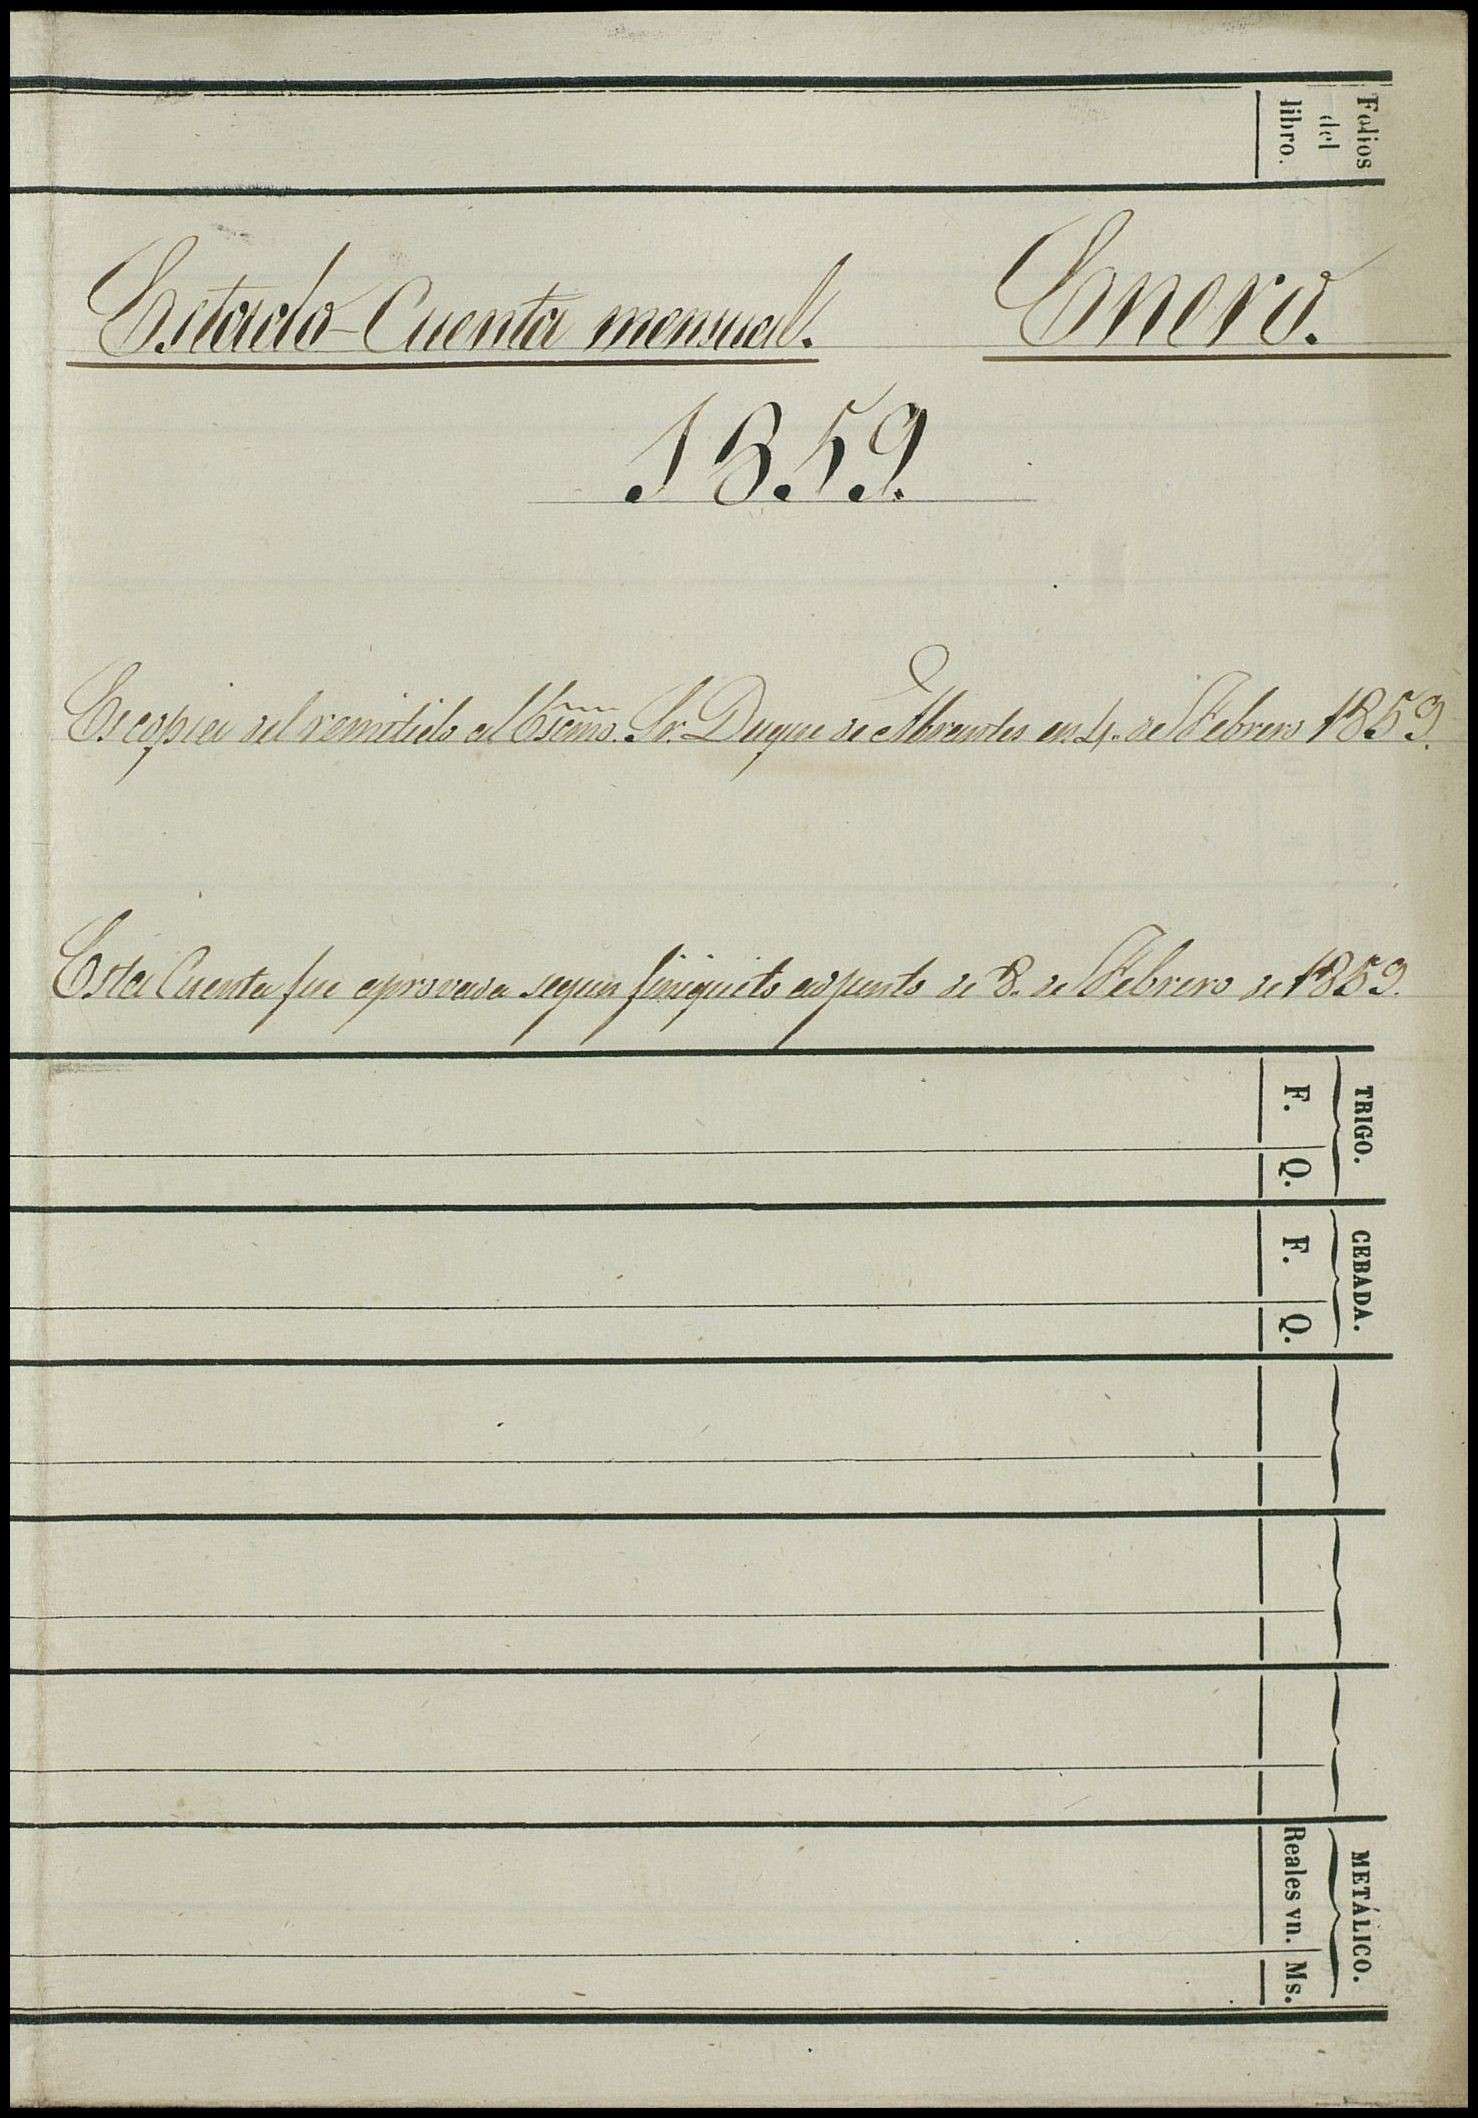 Folios
del
libro.
Estado-Cuenta mensual. Enero.
1859.
Es copia del remitido al Escmo. Sr. Duque de Abrantes en 4. de Febrero 1859.
Esta Cuenta fue aprovada segun finiquito adjunto de 8. de Febrero de 1859.
TRIGO.
F. Q.
CEBADA.
F. Q.
METÁLICO.
Reales vn. Ms.